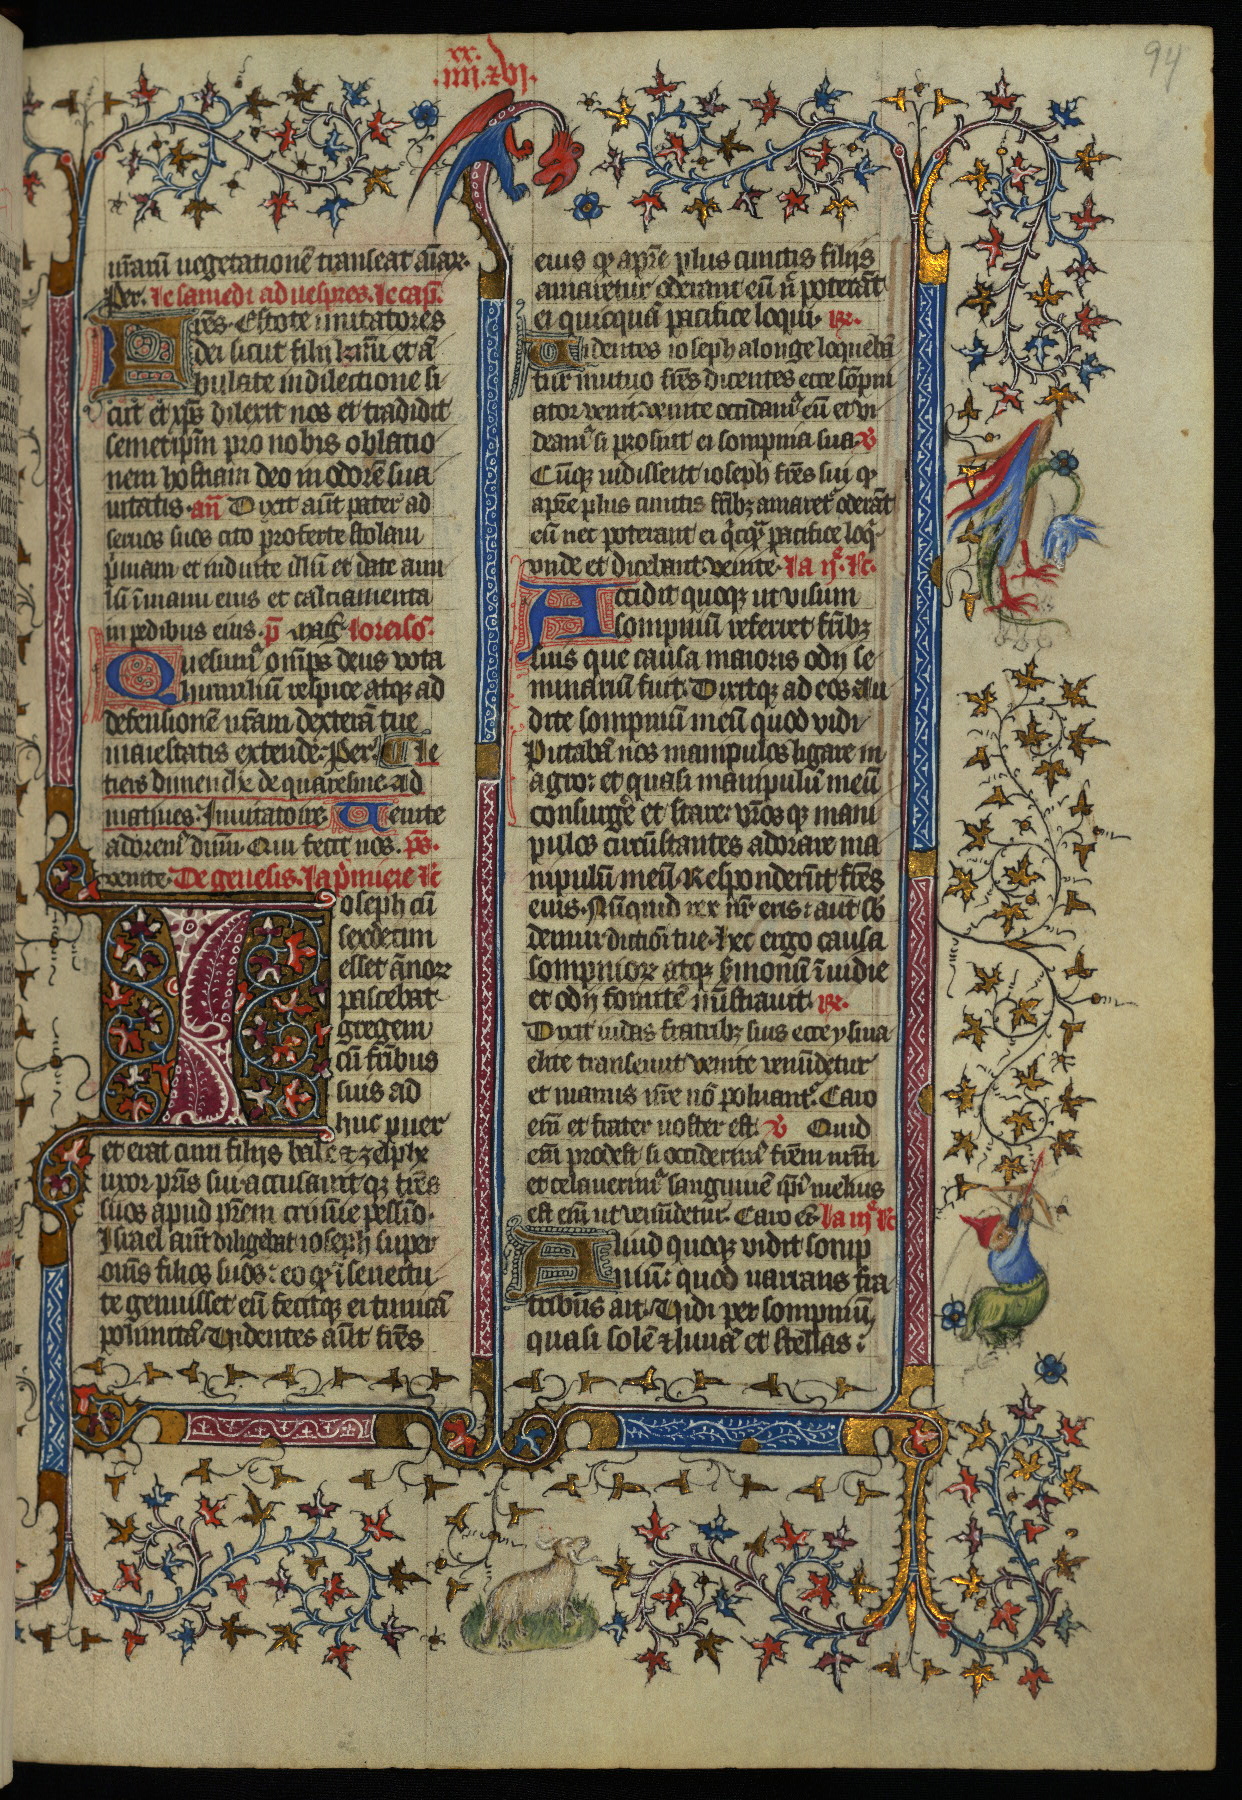 94
xx.
.iiii.xvi.
nr̄arū uegetationē transeat aīarꝝ.
Per. Le samedi ad uespres. le cap̄.
Fr̄es. Estote imitatores
dei sicut filij kr̄mi et ā
bulate in dilectione si
cut et xp̄s dilexit nos et tradidit
semetip̄m pro nobis oblatio
nem hostiam deo in odorē sua
uitatis. añ Dixit aūt pater ad
seruos suos cito proferte stolam
p̄mam et induite illū et date anu
lū ī manu eius et calciamenta
in pedibus eius. p̄ mag̃. loreiso͂.
Quesumꝰ om̄ps deus uota
humiliū respice atqꝫ ad
defensionē nr̄am dexterā tue
maiestatis extende. Per. le
tiers dimenche de quaresme. ad
matines. Inuitatoire. Uenite
adoremꝰ dn̄m. Qui fecit nos. p̄s.
venite. De genesis. la p̄miere lc̄
Ioseph cū
sexdecim
esset ānorꝝ
pascebat
gregem
cū fr̄ibus
suis ad
huc puer
et erat cum filijs bale ⁊ zelphe
uxor pr̄is sui. accusauit qꝫ fr̄es
suos apud pr̄em crimīe pessīo.
Israel aūt diligebat ioseph super
om̄s filios suos: eo qͥ ī senectu
te genuisset eū fecitqꝫ ei tunicā
polimitā. Uidentes aūt fr̄es
eius qͥ a pr̄e plus cunctis filijs
amaretur oderant eū n̄ poterāt
ei quicquā pacifice loqui. ℟.
Uidentes ioseph a longe loquebā
tur mutuo fr̄es dicentes ecce sōpni
ator venit. venite occidamꝰ eū et vi
deamꝰ si prosint ei sompnia sua ℣
Cūqꝫ uidissent ioseph fr̄es sui qͥ
a pr̄e plus cunctis fr̄ibꝫ amaretᷣ oderāt
eū nec poterant ei qͥcqͣ pacifice loqͥ
unde et dicebant. venite. la ijᵉ. lc̄.
Accidit quoqꝫ ut visum
sompniū referret fr̄ibꝫ
suis que causa maioris odij se
minariū fuit. Dixitqꝫ ad eos au
dite sompniū meū quod vidi
Putabā nos manipulos ligare in
agro: et quasi manipulū meū
consurgē et stare: vr̄os qꝫ mani
pulos circūstantes adorare ma
nipulū meū. Responderūt fr̄es
eius. Nūquid rex nr̄ eris: aut sb̄
demur dictiōi tue. hec ergo causa
sompniorꝝ atqꝫ s̄monū īuidie
et odij fomitē mīstrauit. ℟.
Dixit iudas fratribꝫ suis ecce ysma
elite transeunt venite venūdetur
et manus nr̄e nō poluantᷣ. Caro
em̄ et frater noster est. ℣ Quid
em̄ prodest si occiderimꝰ fr̄em nr̄m
et celauerimꝰ sanguinē ip̄i melius
est em̄ ut venūdetur. Caro em̄. la iijᵉ lc̄
Aliud quoqꝫ vidit somp
niū: quod narrans fra
tribus ait. Uidi per sompniū
quasi solē ⁊ lunā et stellas: